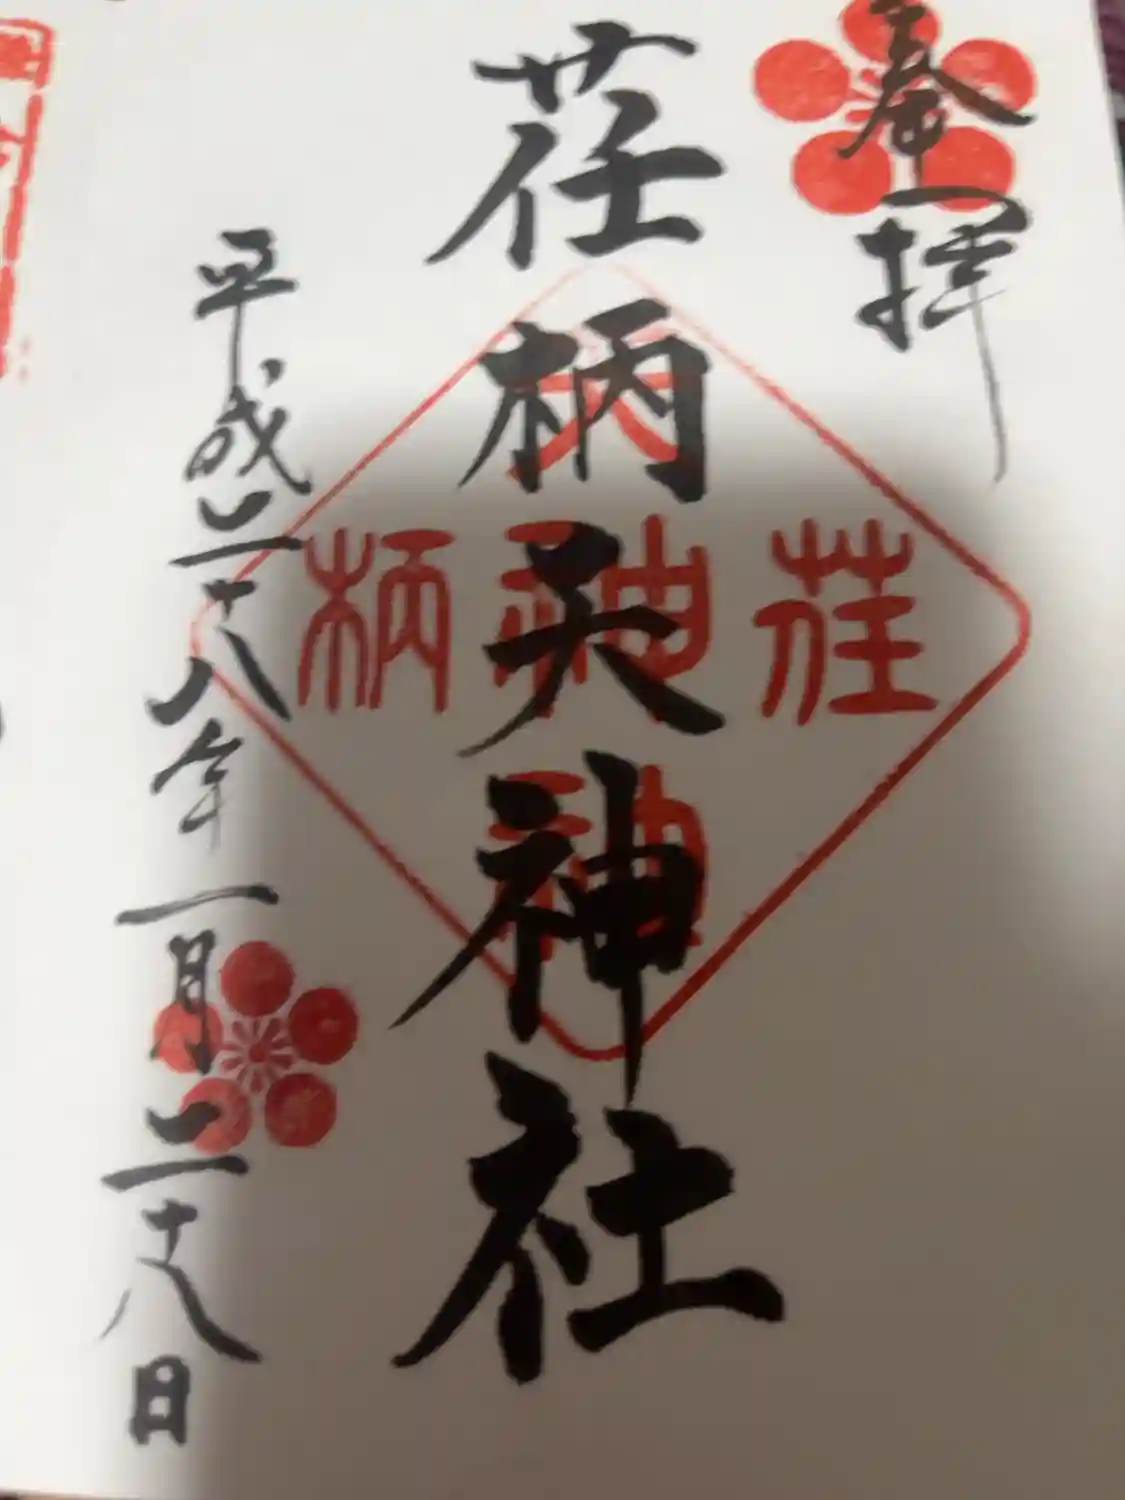 奉拝
荏柄天神社
荏柄天神社
平成二十八年一月二十八日